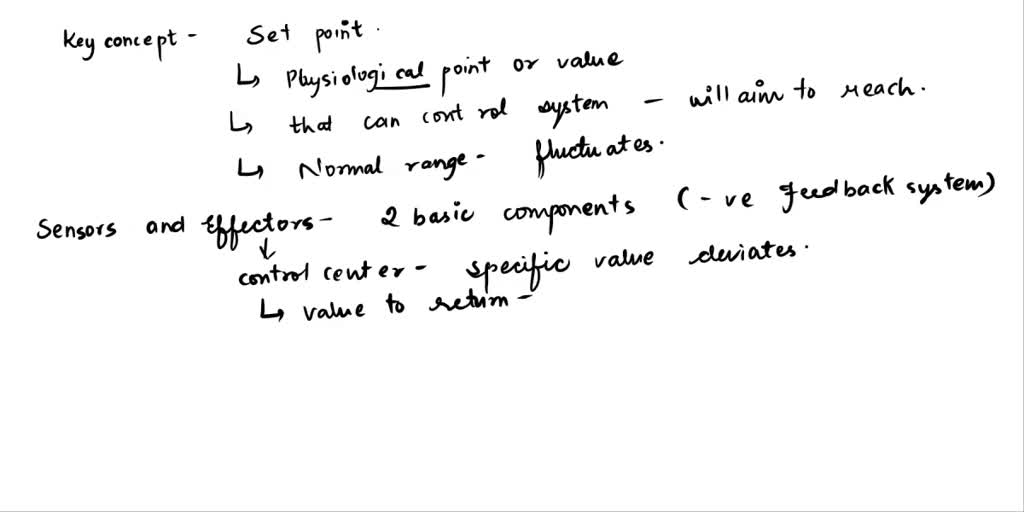 Key concept - Set point.
↳ Physiological point or value
↳ that can control system - will aim to reach.
↳ Normal range - fluctuates.
Sensors and Effectors - 2 basic components (-ve feedback system)
↓
control center - specific value deviates.
↳ value to return -